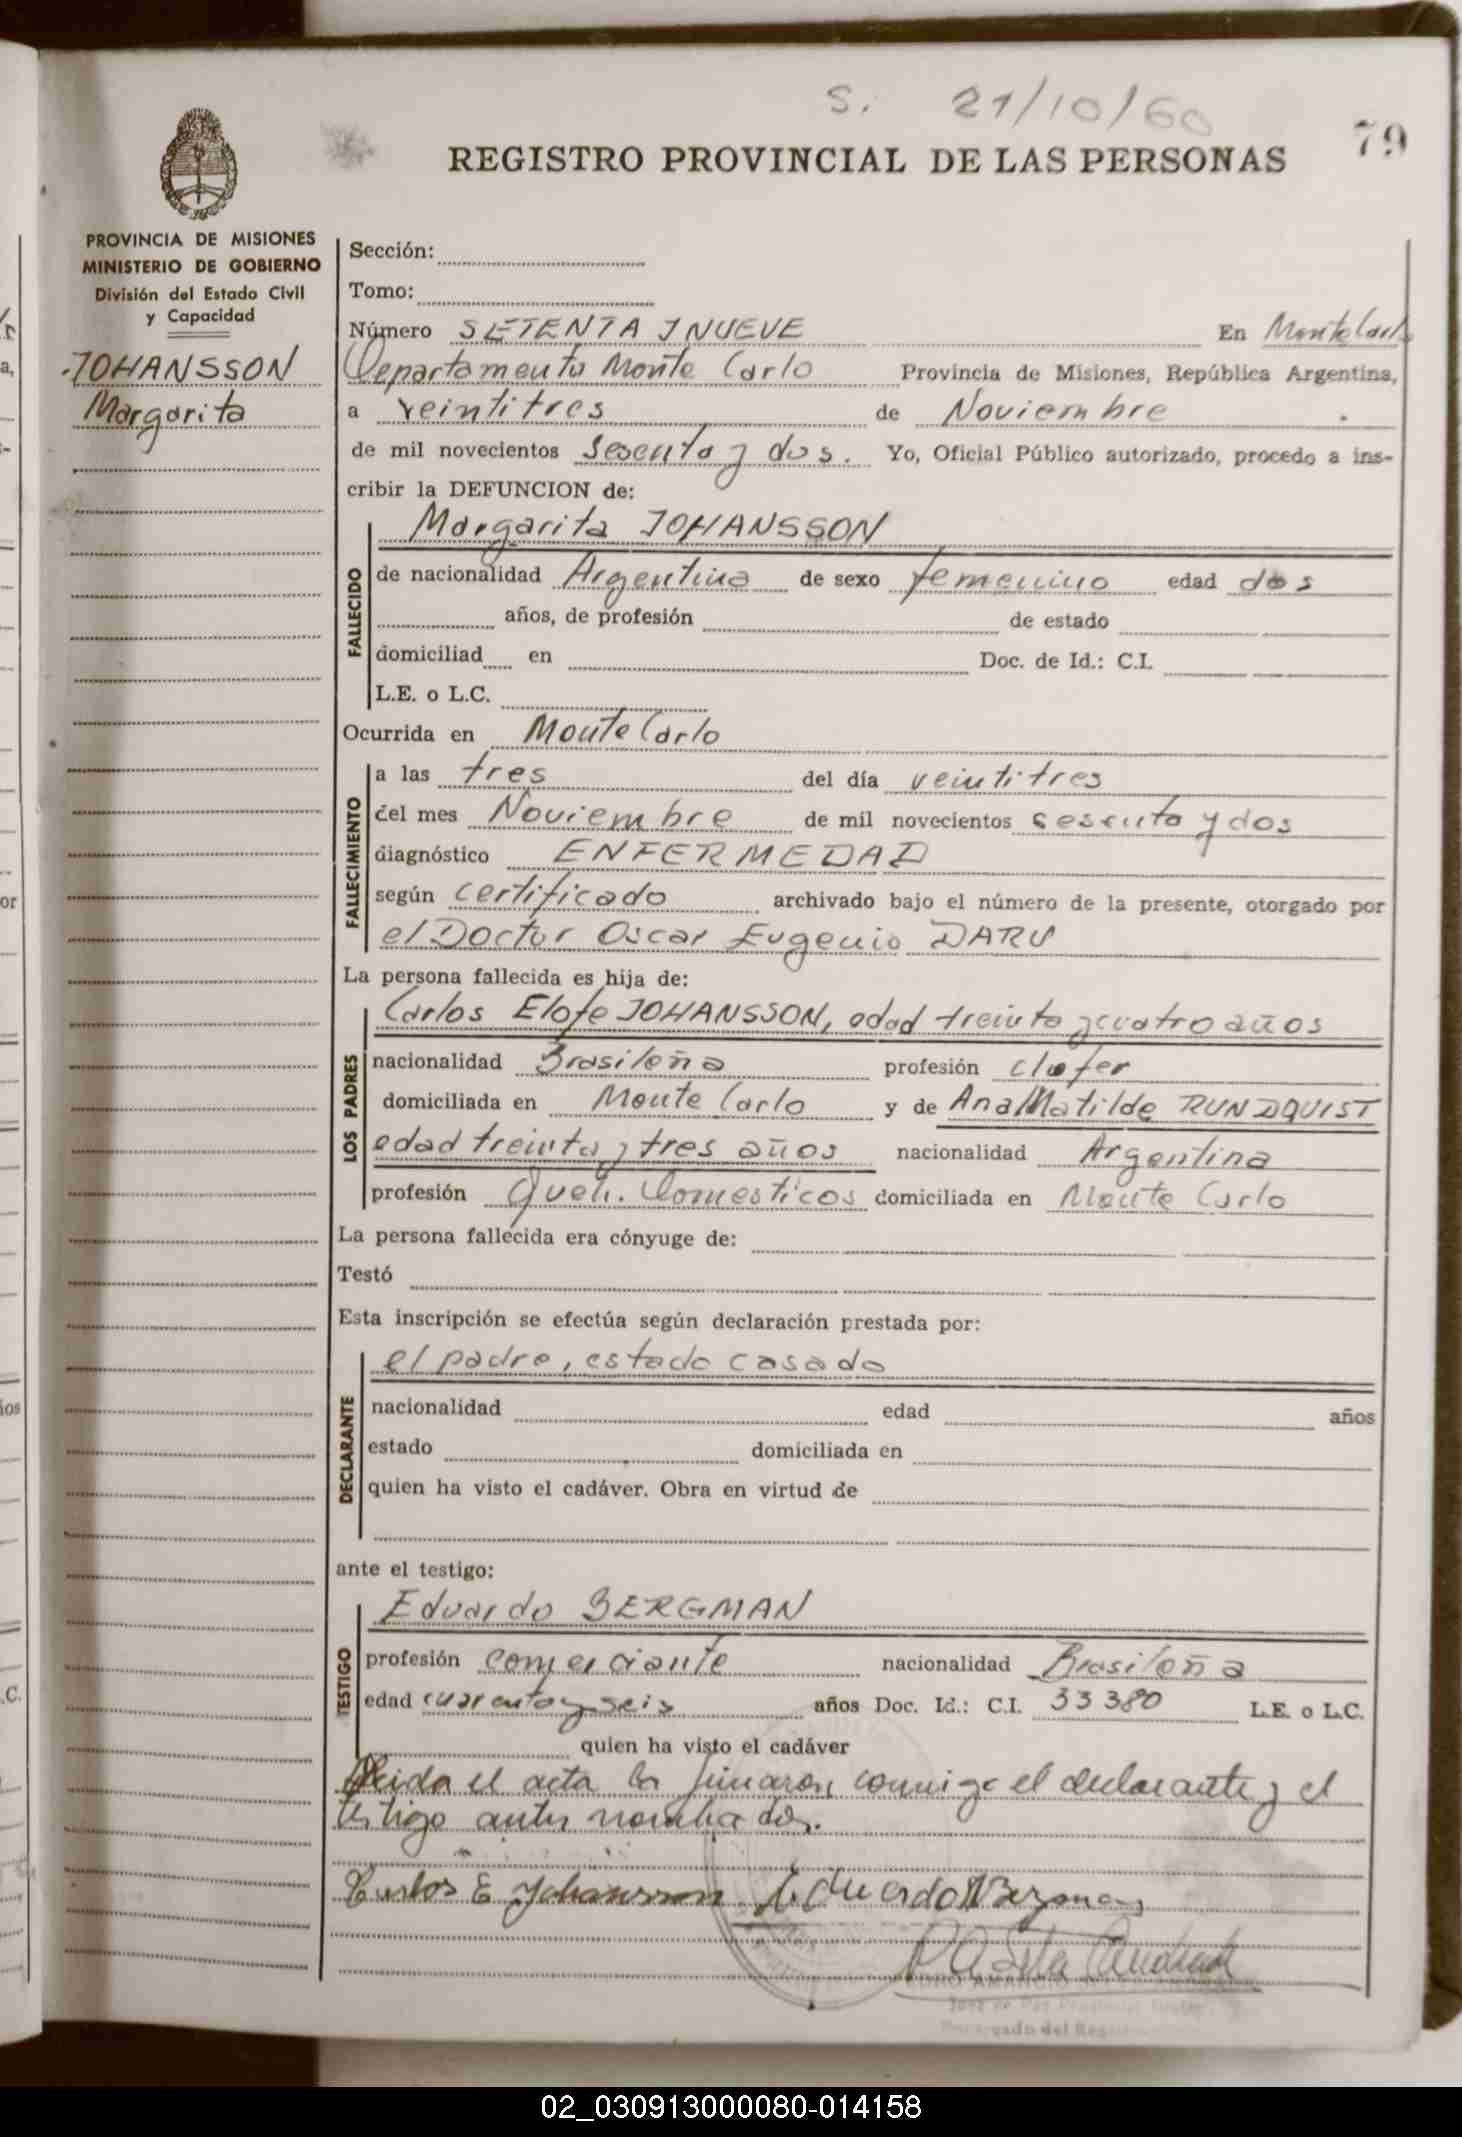 S. 21/10/60
79
REGISTRO PROVINCIAL DE LAS PERSONAS
PROVINCIA DE MISIONES
MINISTERIO DE GOBIERNO
División del Estado Civil
y Capacidad
JOHANSSON
Margarita
Sección:
Tomo:
Número SETENTA Y NUEVE En Monte Carlo
Departamento Monte Carlo Provincia de Misiones, República Argentina,
a veintitres de Noviembre
de mil novecientos sesenta y dos. Yo, Oficial Público autorizado, procedo a ins-
cribir la DEFUNCION de:
Margarita JOHANSSON
FALLECIDO
de nacionalidad Argentina de sexo femenino edad dos
años, de profesión de estado
domiciliad en Doc. de Id.: C.I.
L.E. o L.C.
Ocurrida en Monte Carlo
FALLECIMIENTO
a las tres del día veintitres
del mes Noviembre de mil novecientos sesenta y dos
diagnóstico ENFERMEDAD
según certificado archivado bajo el número de la presente, otorgado por
el Doctor Oscar Eugenio DARU
La persona fallecida es hija de:
LOS PADRES
Carlos Elofe JOHANSSON, edad treinta y cuatro años
nacionalidad Brasileña profesión chofer
domiciliada en Monte Carlo y de Ana Matilde RUNDQUIST
edad treinta y tres años nacionalidad Argentina
profesión Queh. Domesticos domiciliada en Monte Carlo
La persona fallecida era cónyuge de:
Testó
Esta inscripción se efectúa según declaración prestada por:
DECLARANTE
el padre, estado casado
nacionalidad edad años
estado domiciliada en
quien ha visto el cadáver. Obra en virtud de
ante el testigo:
TESTIGO
Eduardo BERGMAN
profesión comerciante nacionalidad Brasileña
edad cuarenta y seis años Doc. Id.: C.I. 33380 L.E. o L.C.
quien ha visto el cadáver
Leida el acta la firmaron conmigo el declarante y el
testigo antes nombrados.
Carlos E Johansson Eduardo Bergman
02_030913000080-014158